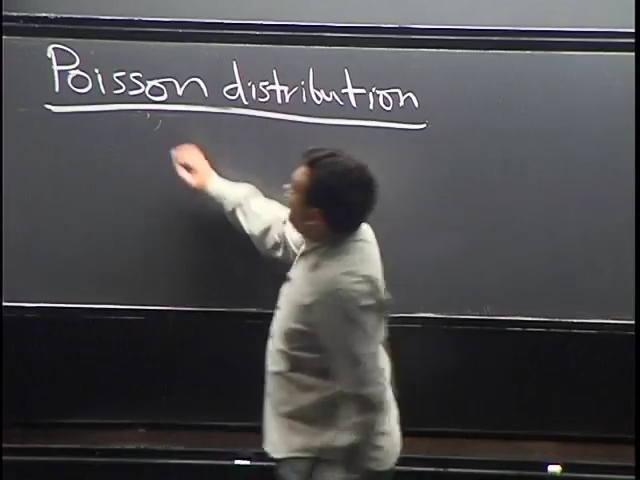 Poisson distribution